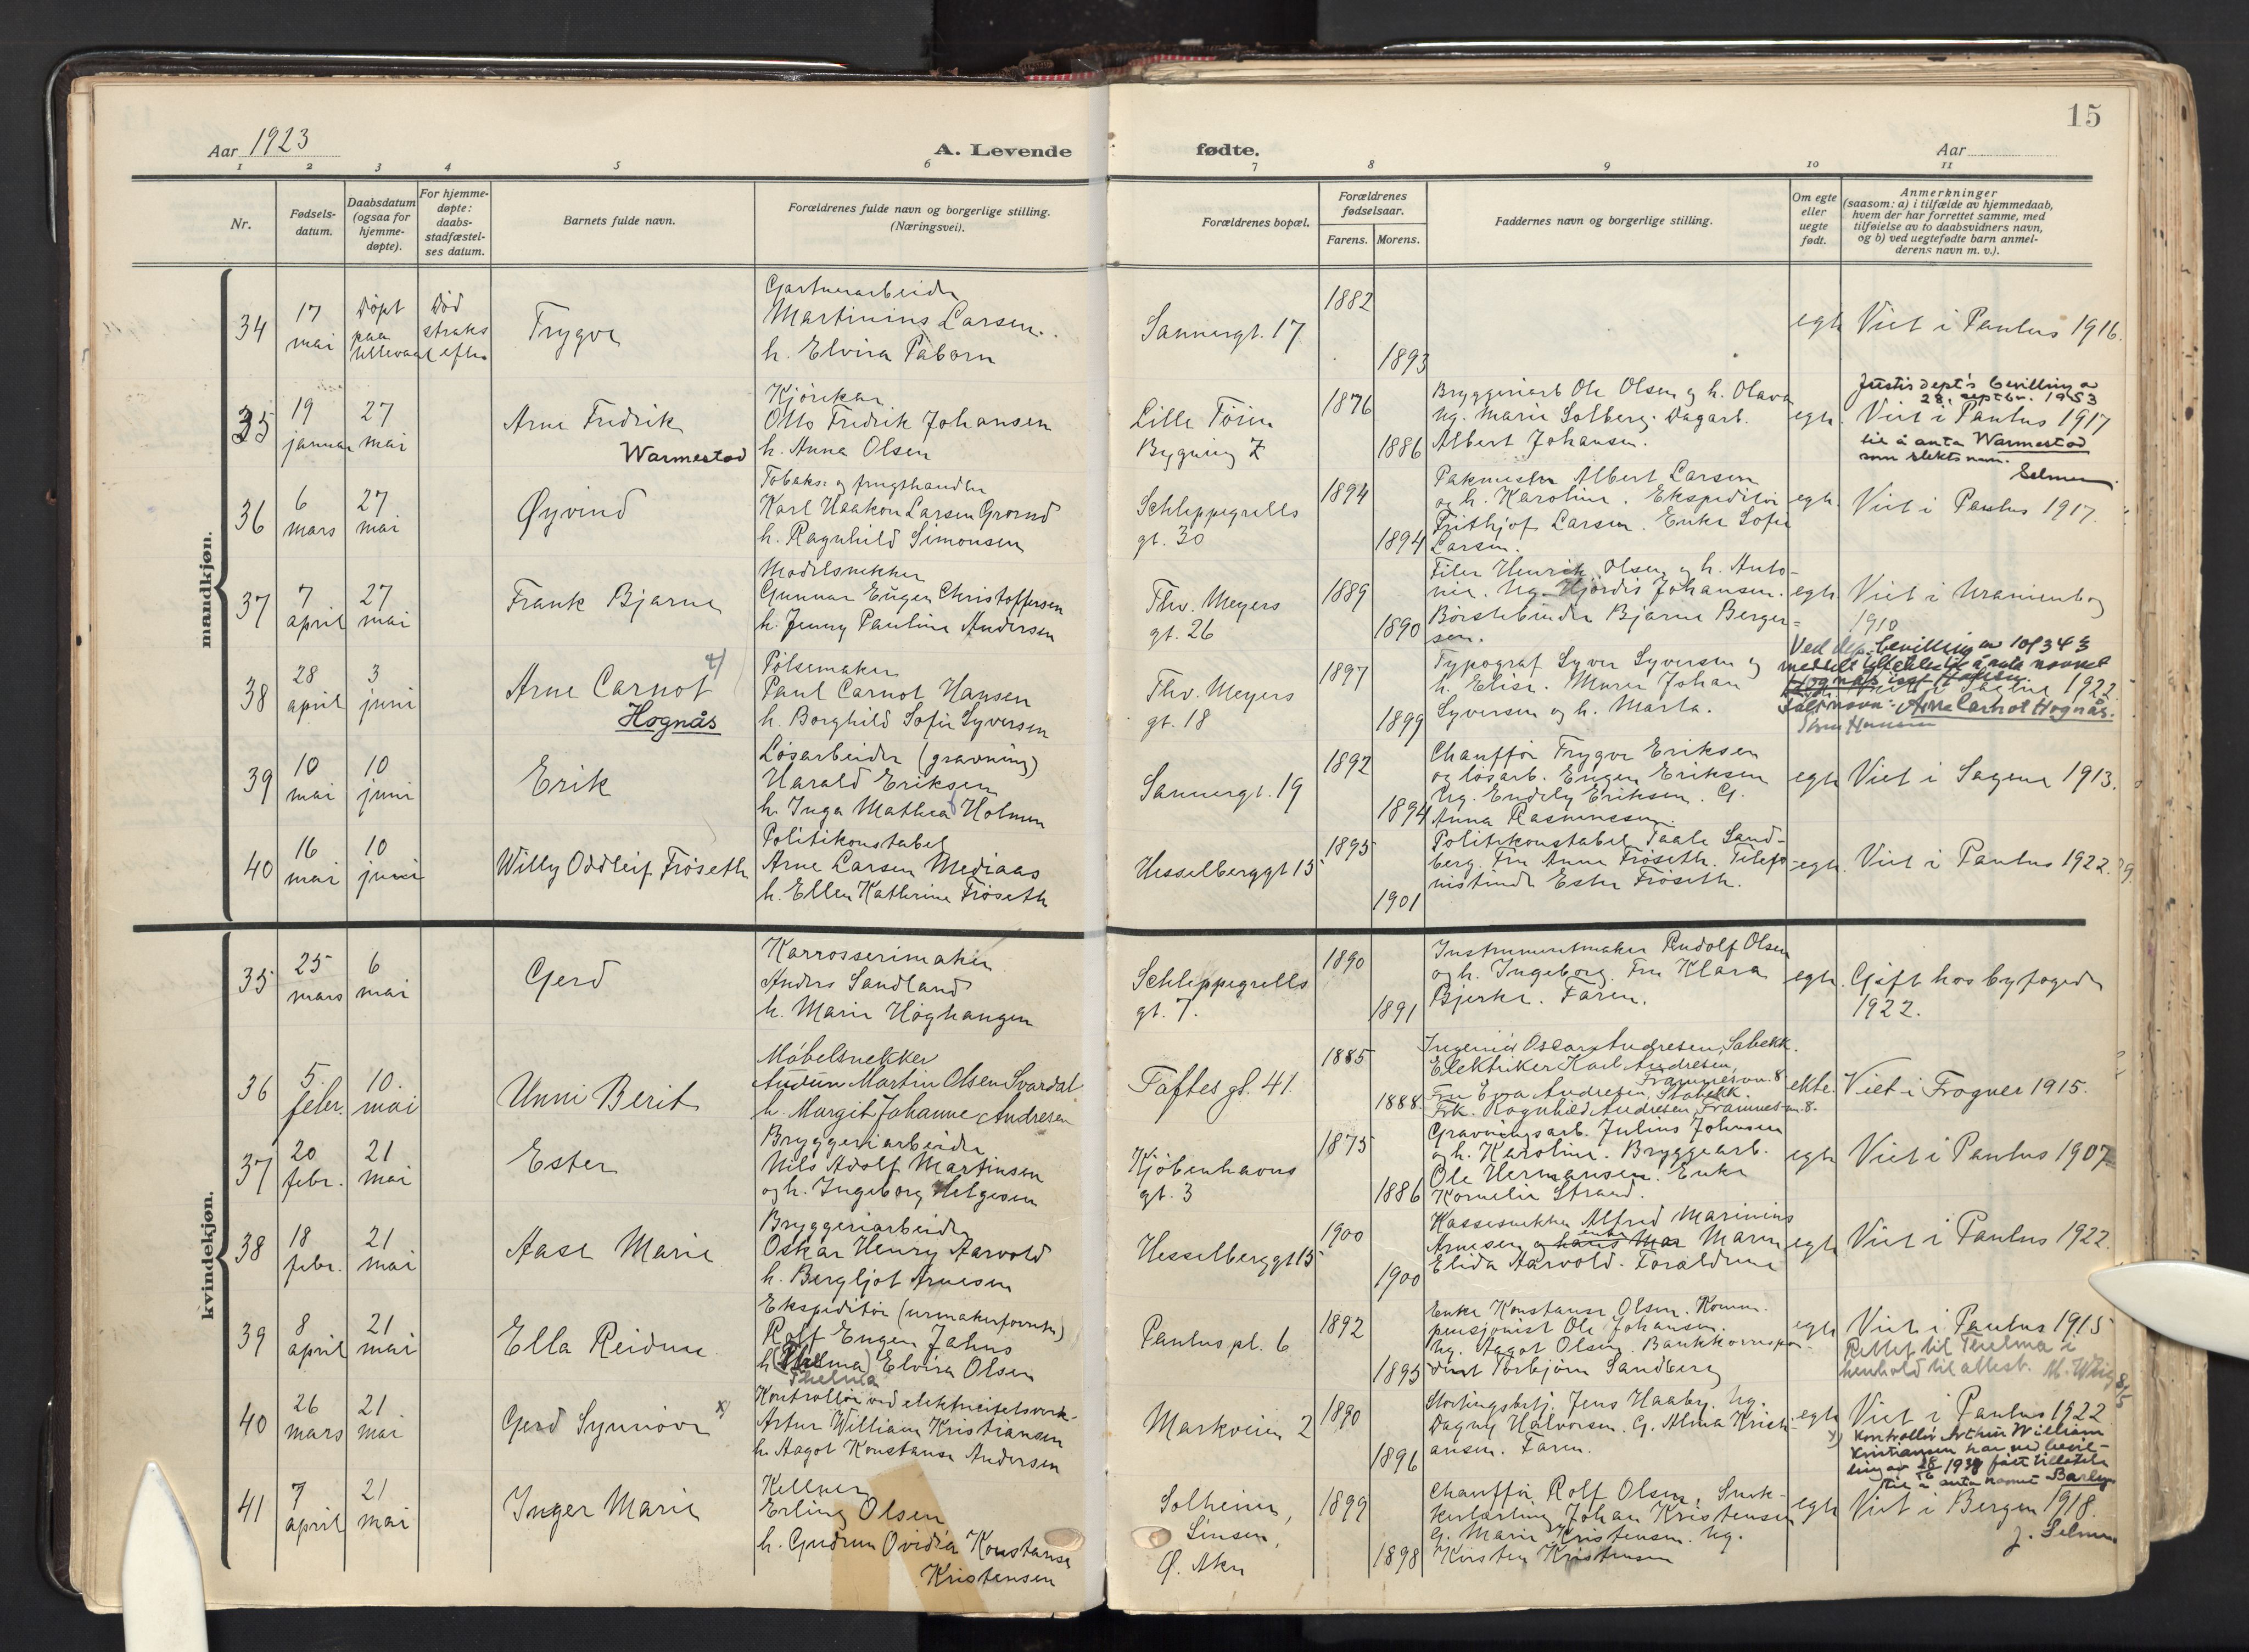 15
Aar 1923
A. Levende
fødte.
Aar
1 2 3 4 5 6 7 8 9 10 11
Nr.
Fødsels-
datum.
Daabsdatum
(ogsaa for
hjemme-
døpte).
For hjemme-
døpte:
daabs-
stadfæstel-
ses datum.
Barnets fulde navn.
Forældrenes fulde navn og borgerlige stilling.
(Næringsvei).
Forældrenes bopæl.
Forældrenes
fødselsaar.
Farens. Morens.
Faddernes navn og borgerlige stilling.
Om egte
eller
uegte
født.
Anmerkninger
(saasom: a) i tilfælde av hjemmedaab,
hvem der har forrettet samme, med
tilføielse av to daabsvidners navn,
og b) ved uegtefødte barn anmel-
derens navn m. v.).
mandkjøn.
34
17
mai
Døpt
paa
Ullevaal
Død
straks
efter
Trygve
Gartnerarbeider
Martinius Larsen.
h. Elvira Paborn
Sannergt. 17
1882
1893
egte
Viet i Paulus 1916.
35
19
januar
27
mai
Arne Fredrik
Warmestad
Kjørekar
Otto Fredrik Johansen
h. Anna Olsen
Lille Tøien
Bygning Z
1876
1886
Bryggeriarb Ole Olsen og h. Olava
Ug. Marie Solberg. Dagarb.
Albert Johansen.
egte.
Justisdept's bevilling av
28. septbr. 1953
Viet i Paulus 1917
til å anta Warmestad
som slektsnavn.
Selmer
36
6
mars
27
mai
Øyvind
Tobaks- og frugthandler
Karl Haakon Larsen Grorud
h. Ragnhild Simonsen
Schleppegrells
gt. 30
1894
1894
Pakmester Albert Larsen
og h. Karoline. Ekspeditør
Frithjof Larsen. Enke Sofie
Larsen.
egte.
Viet i Paulus 1917.
37
7
april
27
mai
Frank Bjarne
Modelsnekker
Gunnar Eugen Christoffersen
h. Jenny Pauline Andersen
Thv. Meyers
gt. 26
1889
1890
Filer Henrik Olsen og h. Anto-
nie. Ug. Hjørdis Johansen.
Børstebinder Bjarne Berger-
sen.
egte
Viet i Uranienborg
1910
38
28
april
3
juni
Arne Carnot
Hognås
Pølsemaker
Paul Carnot Hansen
h. Borghild Sofie Syversen
Thv. Meyers
gt. 18
1897
1899
Typograf Syver Syversen og
h. Elise. Murer Johan
Syversen og h. Marta.
Ved dep. bevilling av
Viet i Sagene 1922.
Arne Carnot Hognås.
39
10
mai
10
juni
Erik
Løsarbeider (gravning)
Harald Eriksen
h. Inga Mathea Holmen
Sannergt. 19
1892
1894
Chauffør Trygve Eriksen
og løsarb. Eugen Eriksen
Ug. Endely Eriksen. G.
Anna Rasmussen.
egte
Viet i Sagene 1913.
40
16
mai
10
juni
Willy Oddleif Frøseth
Politikonstabel
Arne Larsen Mediaas
h. Ellen Kathrine Frøseth
Hesselberggt 15
1895
1901
Politikonstabel Taale Sand-
berg. Fru Anna Frøseth. Telefo-
nistinde Ester Frøseth.
egte.
Viet i Paulus 1922.
kvindekjøn.
35
25
mars
6
mai
Gerd
Karrosserimaker
Anders Sandland
h. Marie Høghaugen
Schleppegrells
gt. 7.
1890
1891
Instrumentmaker Rudolf Olsen
og h. Ingeborg. Fru Klara
Bjerke. Faren.
egte.
Gift hos byfogden
1922.
36
5.
febr.
10.
mai
Unni Berit
Møbelsnekker
Audun Martin Olsen Svardal
h. Margit Johanne Andresen
Toftes gt. 41.
1885
1888
Ingeniør Oscar Andresen, Stabekk.
Elektriker Karl Andresen,
Framnesvn. 8
Fru Ena Andresen, Stabekk.
Frk. Ragnhild Andresen, Framnesvn. 8.
ekte.
Viet i Frogner 1915.
37
20
febr.
21
mai
Ester
Bryggeriarbeider
Nils Adolf Martinsen
og h. Ingeborg Helgesen
Kjøbenhavns
gt. 3
1875
1886
Gravningsarb. Julius Johnsen
og h. Karoline. Bryggearb.
Ole Hermansen. Enke
Kornelie Strand.
egte
Viet i Paulus 1907
38
18
febr.
21
mai
Aase Marie
Bryggeriarbeider
Oskar Henry Aarvold
h. Bergljot Arnesen
Hesselberggt 15
1900
1900
Kassesnekker Alfred Marinius
Arnesen og hans Mar enke Maren
Elida Aarvold. Forældrene
egte
Viet i Paulus 1922.
39
8
april
21
mai
Ella Reidun
Ekspeditør (urmakerforretn.)
Rolf Eugen Jahns
h. (Thelma) Elvira Olsen
Thelma
Paulus pl. 6
1892
1895
Enke Konstanse Olsen. Komm.
pensjonist Ole Johansen.
Ug. Aagot Olsen. Bankkorrespon-
dent Torbjørn Sandberg
egte
Viet i Paulus 1915
Rettet til Thelma i
henhold til attest.
40
26
mars
21
mai
Gerd Synnøve x)
Kontrollør ved elektricitetsverk-
Artur William Kristiansen
h. Aagot Konstanse Andersen
Markveien 2
1890
1896
Stortingsbetj. Jens Haaby. Ug.
Dagny Halvorsen. G. Alma Kristi-
ansen. Faren.
egte
Viet i Paulus 1922
x) Kontrollør Arthur William
Kristiansen har ved bevil-
ling av 28/6 1938 fått tillatelse
til å anta navnet Barlyn
41
7
april
21
mai
Inger Marie
Kellner
Erling Olsen
h. Gudrun Ovidia Konstanse
Kristensen
Solheim,
Sinsen,
Ø. Aker
1899
1898
Chauffør Rolf Olsen, Snek-
kerlærling Johan Kristensen
G. Marie Kristensen. Ug.
Kirsten Kristensen
egte
Viet i Bergen 1918.
J. Selmer